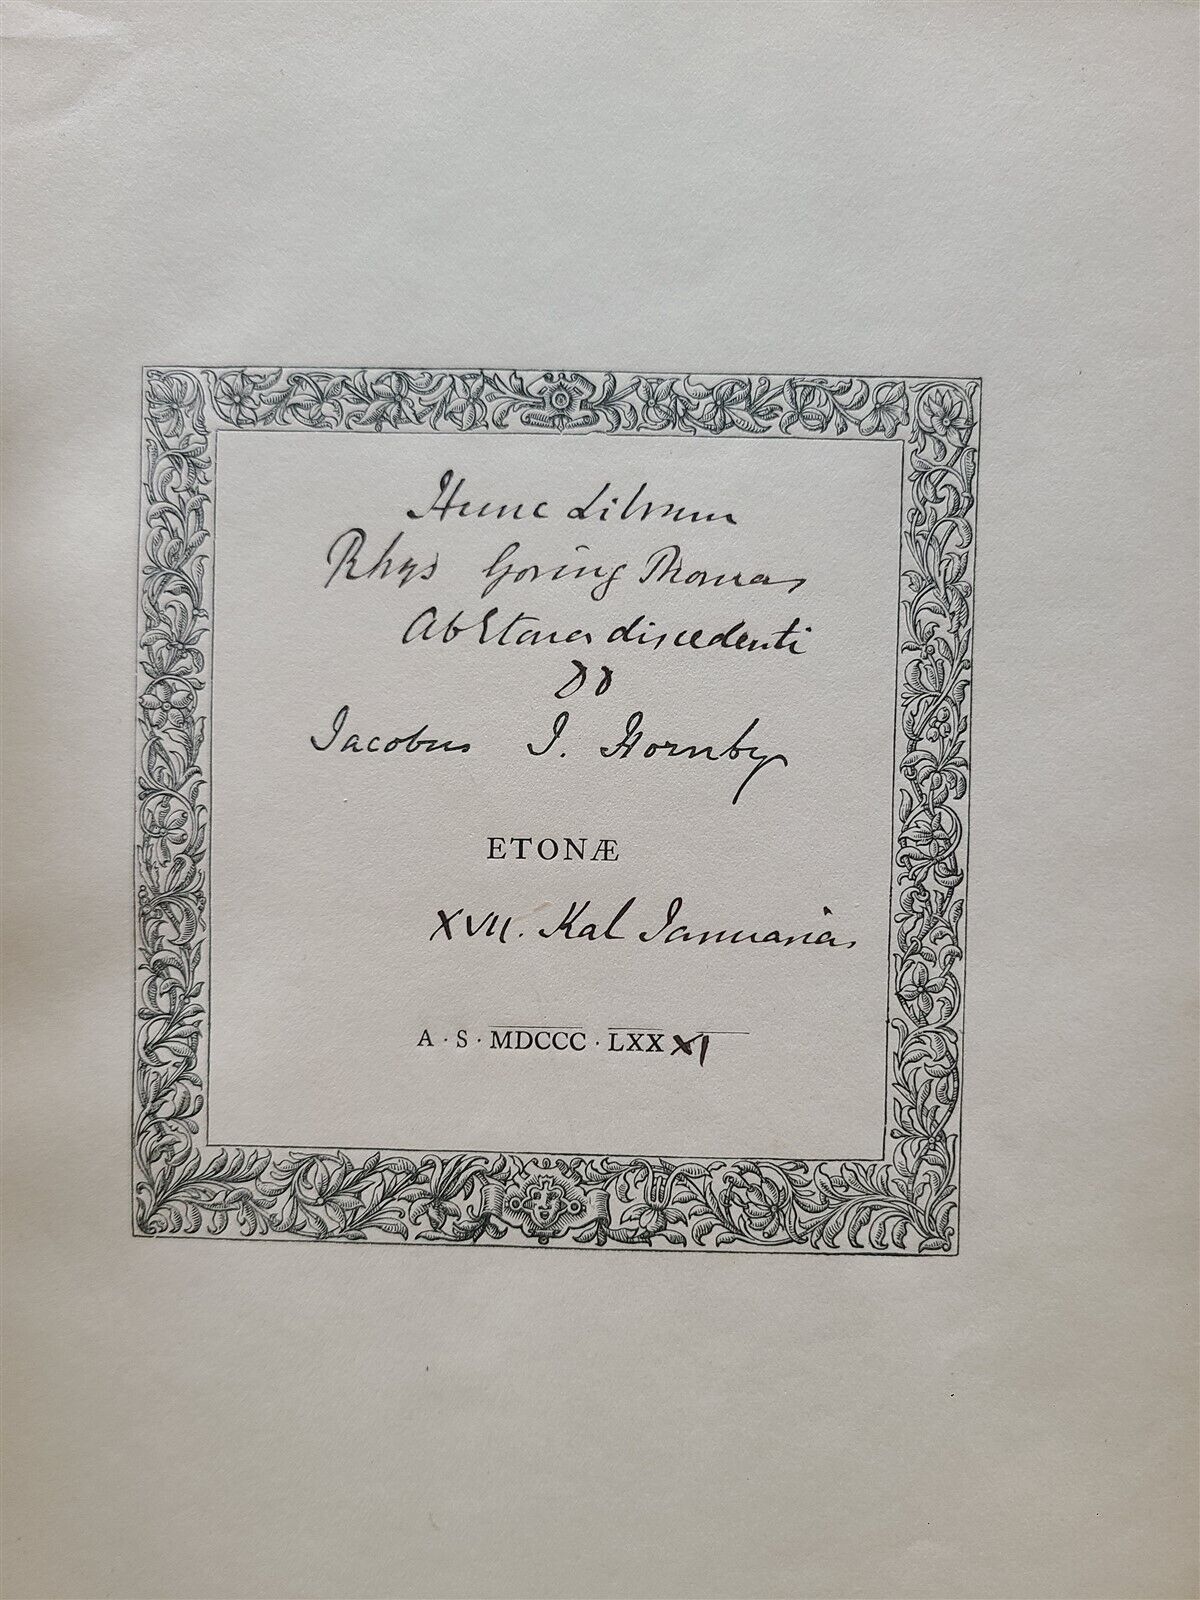 Hunc Librum
Rhys Goring Thomas
Ab Etona discedenti
DD
Jacobus J. Hornby
ETONÆ
XVII. Kal Januarias
A · S · MDCCC · LXXXI